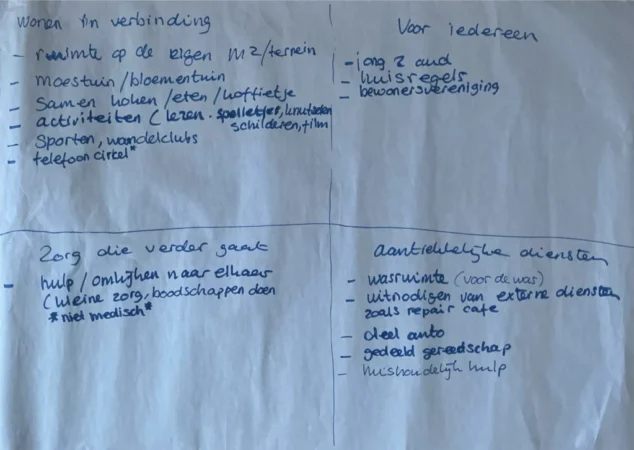 wonen in verbinding
- ruimte op de eigen m2/terrein
- moestuin/bloementuin
- Samen koken/eten/koffietje
- activiteiten (lezen. spelletjes, knutselen
schilderen, film
- Sporten, wandelclubs
- telefooncirkel*
Voor iedereen
- jong & oud
- huisregels
- bewonersvereniging
Zorg die verder gaat
- hulp / omkijken naar elkaar
(kleine zorg, boodschappen doen
*niet medisch*
aantrekkelijke diensten
- wasruimte (voor de was)
- uitnodigen van externe diensten
zoals repair cafe
- deel auto
- gedeeld gereedschap
- huishoudelijk hulp